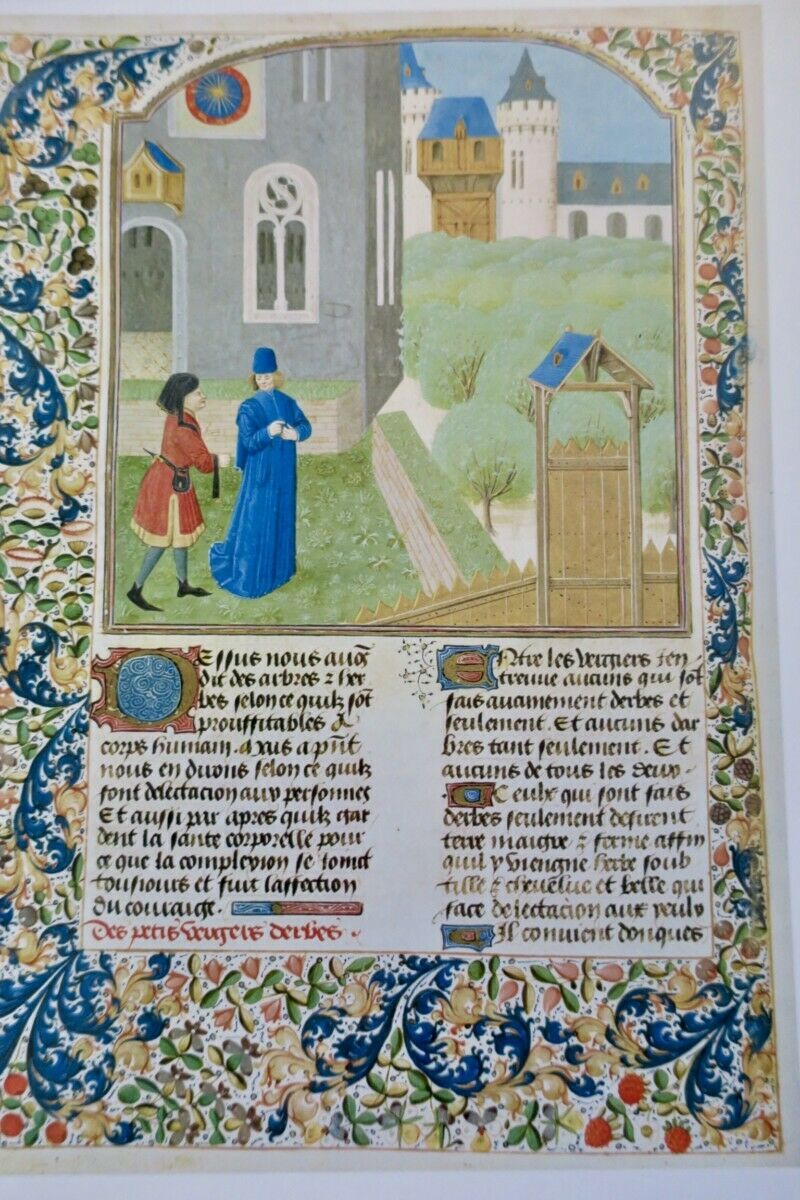 Dessus nous auōs
dit des arbres ⁊ her
bes selon ce quilz sōt
prouffitables
corps humain.
nous en dirons selon ce quilz
sont delectacion aux personnes
Et aussi par apres quilz gar
dent la sante corporelle pour
ce que la complexion se ioinct
tousiours et suit laffection
du couraige.
Des petis vergiers derbes.
Entre les vergiers sen
treuue aucuns qui sōt
fais aucunement derbes et
seulement. Et aucuns dar
bres tant seulement. Et
aucuns de tous les deux.
Ceulx qui sont fais
derbes seulement desirent
terre maigre ⁊ ferme affin
quil y viengne herbe soub
tille ⁊ cheuelue et belle qui
face delectacion aux yeulx
Il conuient donques